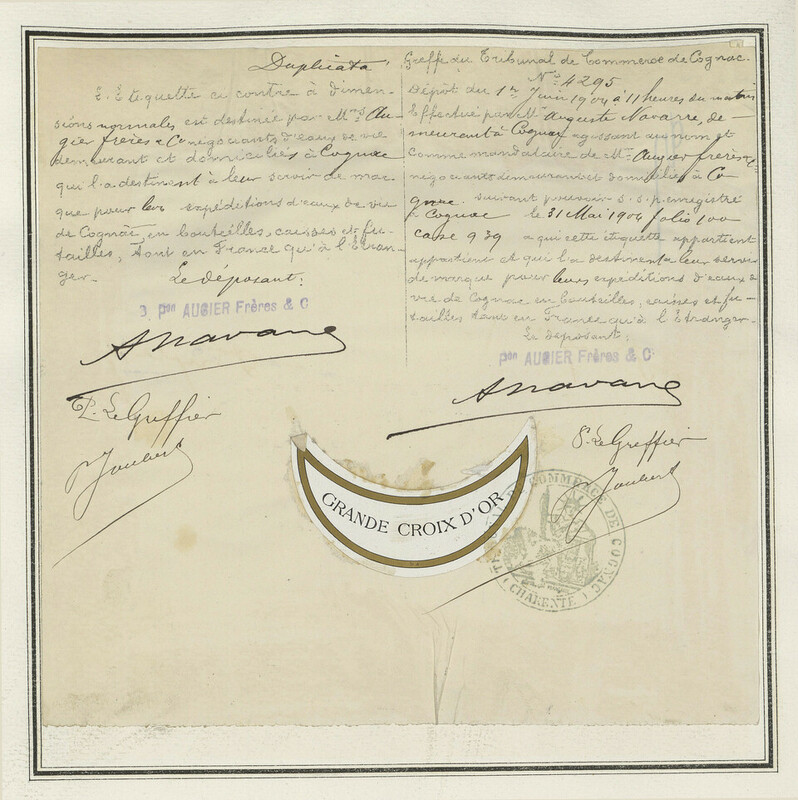 Duplicata
L'Etiquette ci contre à dimen-
sions normales est destinée par Mrs Au-
gier frères & Co négociants d'eaux de vie
demeurant et domiciliés à Cognac
qui l'a destinent à leur servir de mar-
que pour leurs expéditions d'eaux de vie
de Cognac, en bouteilles, caisses et fu-
tailles, tant en France qu'à l'Etran-
ger.
Le déposant:
Pon AUGIER Frères & C
A Navarre
P. Le Greffier
Joubert
Greffe du Tribunal de Commerce de Cognac.
No 4295
Dépôt du 1er Juin 1904 à 11 heures du matin
Effectué par Mr Auguste Navarre, de-
meurant à Cognac agissant au nom et
comme mandataire de Mrs Augier frères & Co
négociants demeurant et domiciliés à Co-
gnac. suivant pouvoir s.s.p. enregistré
à Cognac le 31 Mai 1904 folio 100
case 939 a qui cette étiquette appartient
appartient et qui l'a destinent a leur servir
de marque pour leurs expéditions d'eaux de
vie de Cognac en bouteilles, caisses et fu-
tailles tant en France qu'à l'Etranger.
Le déposant:
Pon AUGIER Frères & C
A Navarre
P. Le Greffier
Joubert
GRANDE CROIX D'OR
TRIBUNAL DE COMMERCE DE COGNAC
CHARENTE